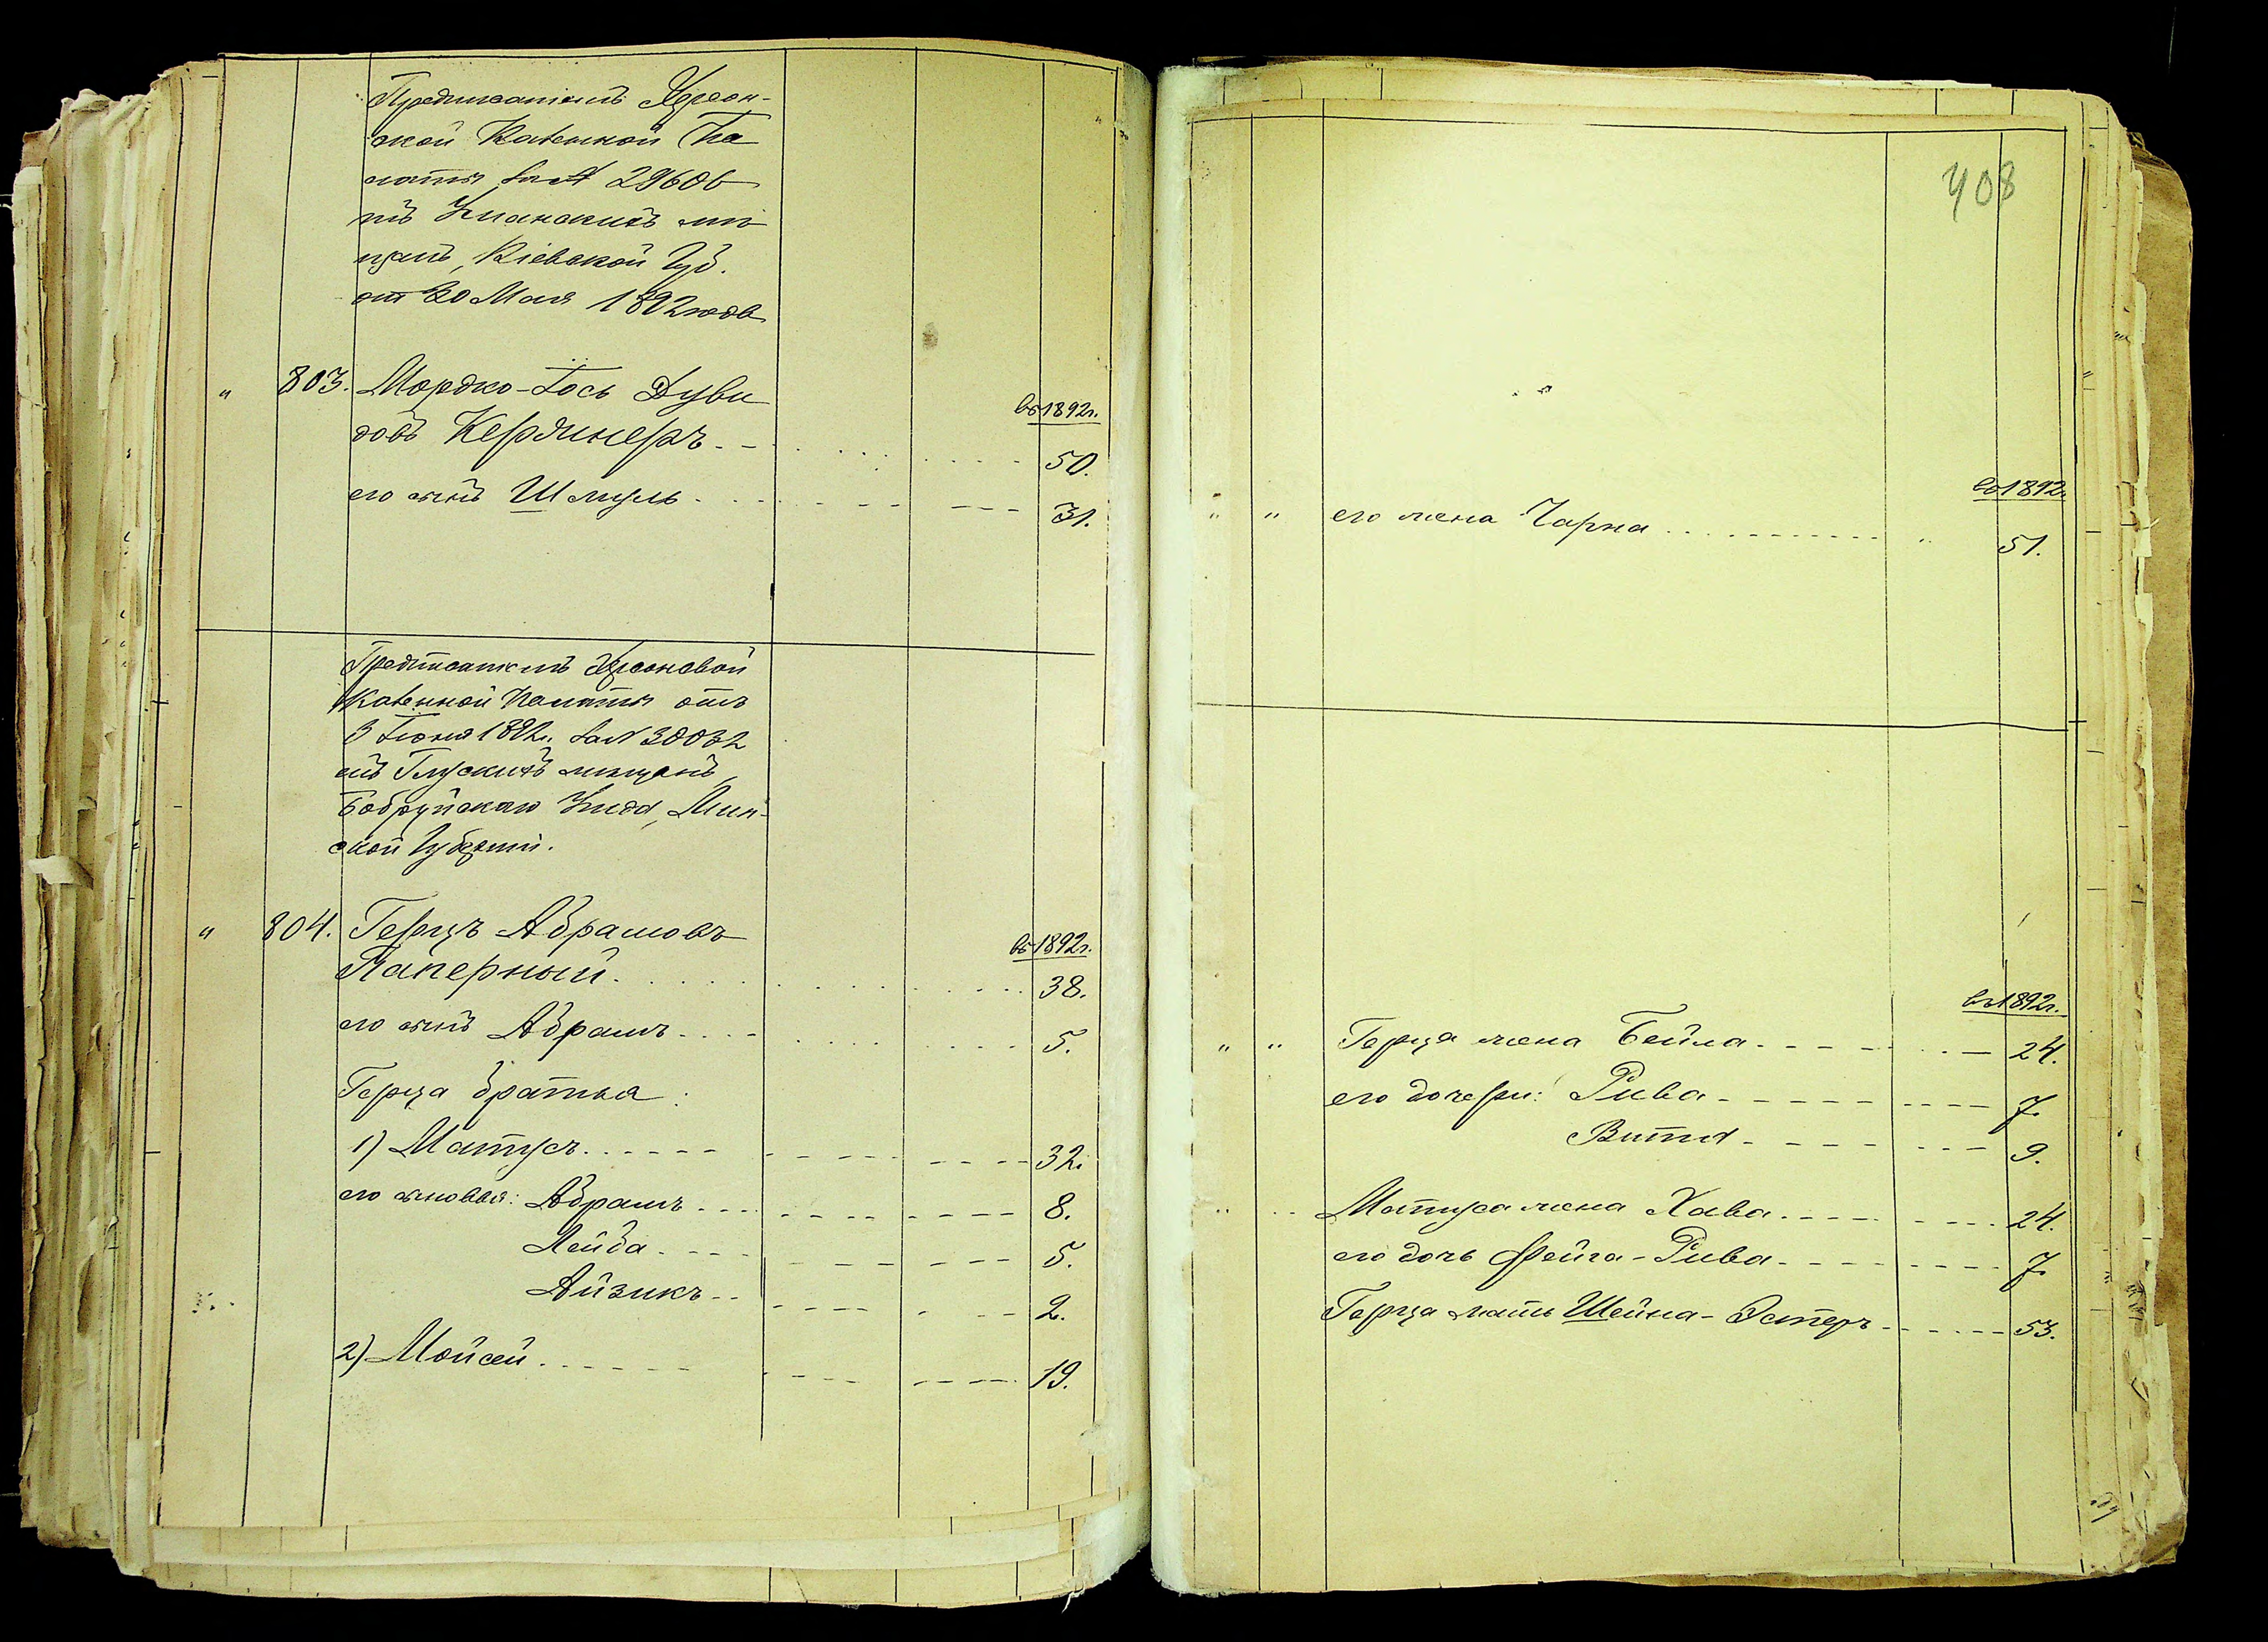 Предписаніемъ Херсон-
ской Казенной Па
латы за № 29606
изъ Уманскихъ мѣ
щанъ, Кіевской Губ.
от 20 Мая 1892 года
" 803. Мордко-Іось Дуви
въ 1892 г.
довъ Кердинеръ 50.
его сынъ Шмуль 31.
Предписаніемъ Херсонской
Казенной Палаты отъ
3 Іюня 1892 г. за № 30032
изъ Глускихъ мѣщанъ,
Бобруйскаго Уезда, Мин-
ской Губерніи.
" 804. Герцъ Абрамовъ
въ 1892 г.
Паперный 38.
его сынъ Абрамъ 5.
Герца братья:
1) Матусъ 32.
его сыновья: Абрамъ 8.
Лейба 5.
Айзикъ 2.
2) Мойсей 19.
408
въ 1892 г.
" " его жена Чарна " 51.
въ 1892 г.
" " Герца жена Бейла 24.
его дочери: Рива 7.
Витя 9.
" " Матуса жена Хава 24.
его дочь Фейга-Рива 7.
Герца мать Шейна-Эстеръ 53.